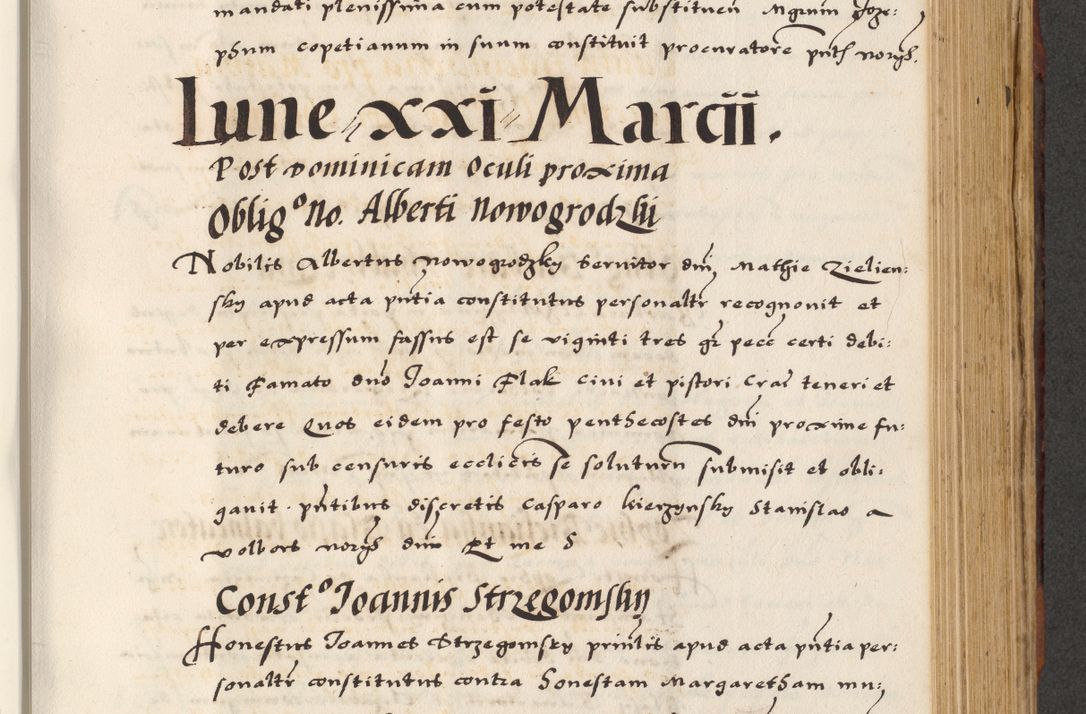 mandati plenissima cum potestate substituen Mgrum Joze:
phum copetianum in suum constituit procuratore pnth norys.
Lune xxi Marcii.
Post Dominicam Oculi proxima
Oblig⁰ No. Alberti Nowogrodzkii
Nobilis Albertus Nowogrodzky Servitor dni Mathie Zielien:
sky apud acta pntia constitutus personaltr recognovit et
per expressum fassus est se viginti tres gr pecc certi debi:
ti famato dno Joanni Flak civi et pistori Crac teneri et
debere Quos eidem pro festo penthecostes dni proxime fu:
turo sub censuris ecclicis se soluturu submisit et obli:
gavit. pntibus discretis Casparo kierzynsky Stanislao a
volbors norys dnis Et me S
Const⁰ Joannis Strzegomsky
Honestus Joannes Strzegomsky prinlis apud acta pntia per:
sonaltr constitutus contra honestam Margaretham mu: